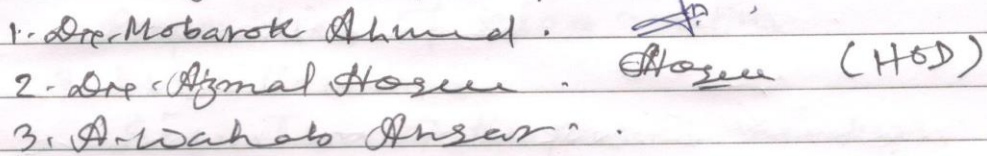 1. Dr. Mobarok Ahmed.
2. Dr. Azmal Hosen. Hosen (HOD)
3. A. Wahab Ansari.